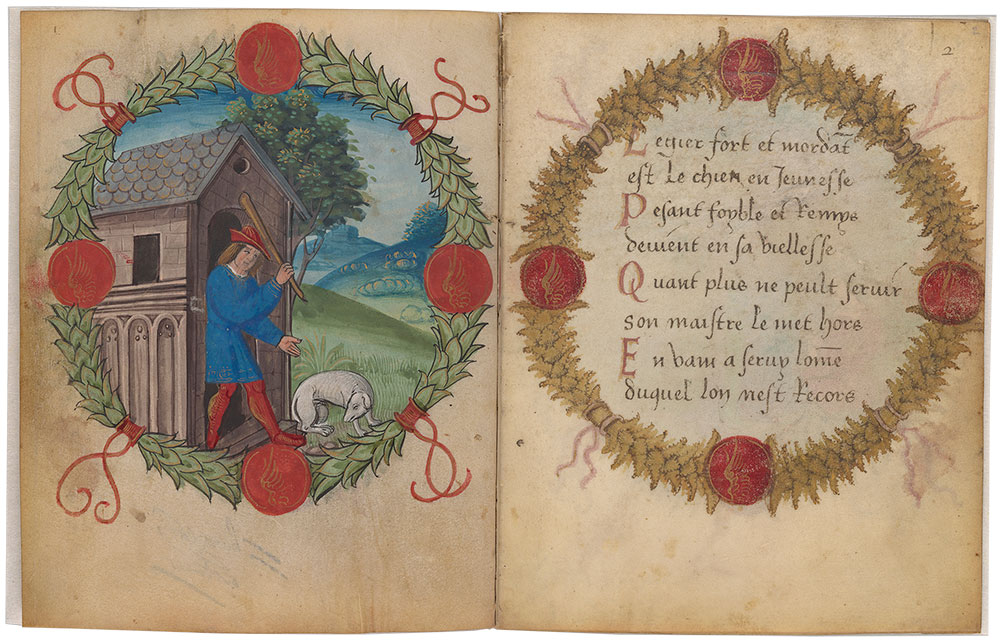 1
2
Legier fort et mordāt
est le chien en Jeunesse
Pesant foyble et Remys
devient en sa viellesse
Quant plus ne peult servir
son maistre le met hors
En vain a servy lōme
duquel lon nest Recors